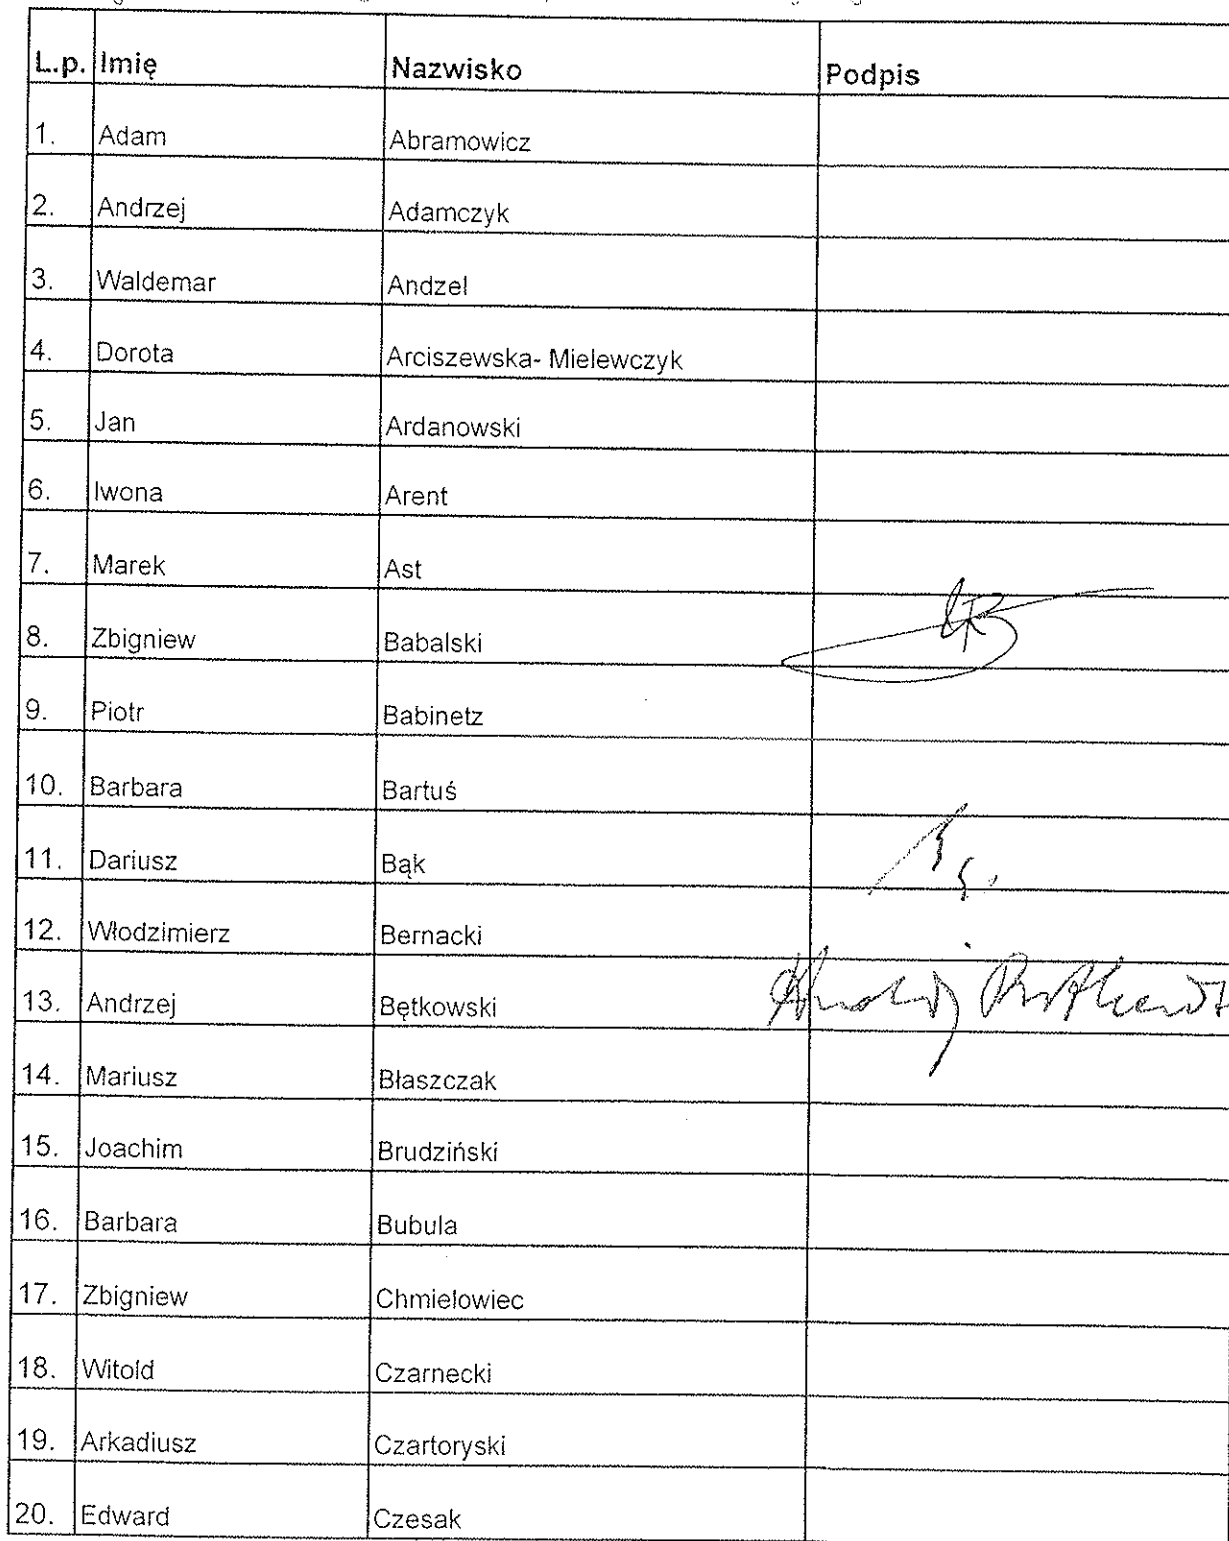 L.p. Imię Nazwisko Podpis
1. Adam Abramowicz
2. Andrzej Adamczyk
3. Waldemar Andzel
4. Dorota Arciszewska- Mielewczyk
5. Jan Ardanowski
6. Iwona Arent
7. Marek Ast
8. Zbigniew Babalski
9. Piotr Babinetz
10. Barbara Bartuś
11. Dariusz Bąk
12. Włodzimierz Bernacki
13. Andrzej Bętkowski
14. Mariusz Błaszczak
15. Joachim Brudziński
16. Barbara Bubula
17. Zbigniew Chmielowiec
18. Witold Czarnecki
19. Arkadiusz Czartoryski
20. Edward Czesak